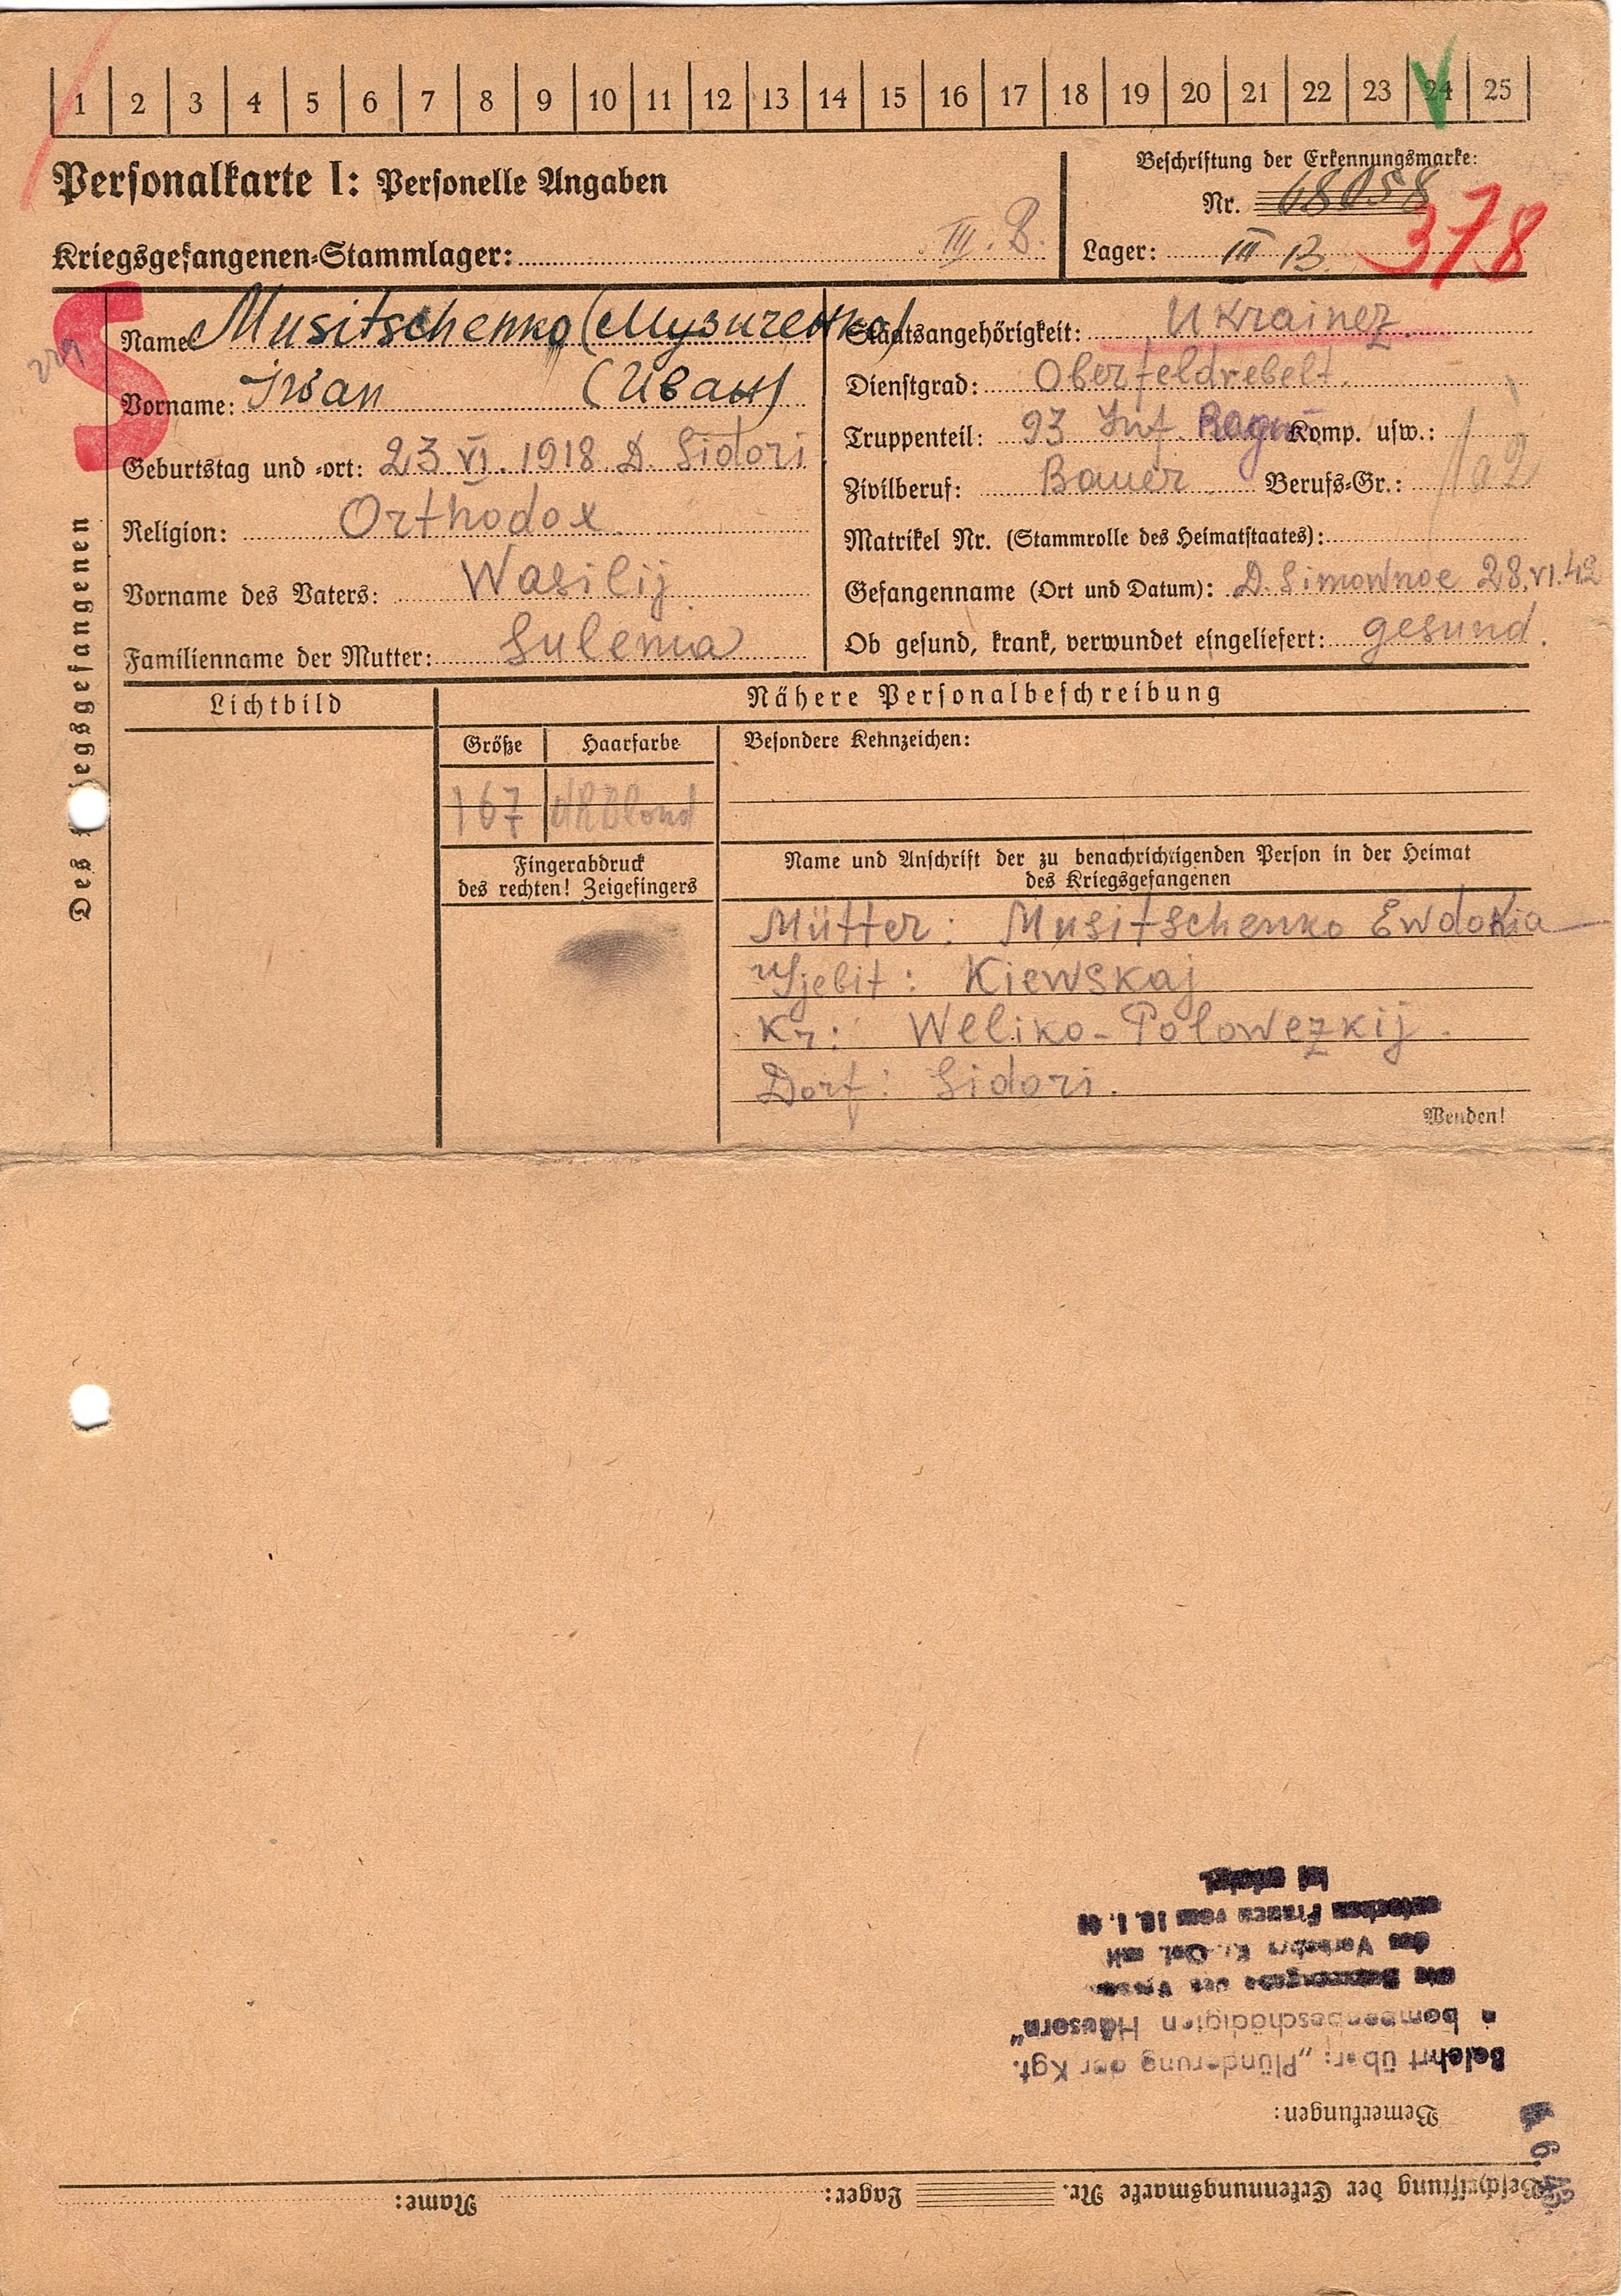 1 2 3 4 5 6 7 8 9 10 11 12 13 14 15 16 17 18 19 20 21 22 23 24 25
Personalkarte I: Personelle Angaben
Beschriftung der Erkennungsmarke:
Nr. 68058
378
Kriegsgefangenen-Stammlager: III. B.
Lager: III B
S
Des Kriegsgefangenen
Name: Musitschenko (Музиченко)
Vorname: Iwan (Иван)
Geburtstag und -ort: 23 VI. 1918 D. Sidori
Religion: Orthodox
Vorname des Vaters: Wasilij
Familienname der Mutter: Sulema
Staatsangehörigkeit: Ukrainez.
Dienstgrad: Oberfeldvebelt.
Truppenteil: 93 Inf. Komp. usw.:
Zivilberuf: Bauer Berufs-Gr.:
Matrikel Nr. (Stammrolle des Heimatstaates):
Gefangenname (Ort und Datum): D. Simownoe 28.VI.42
Ob gesund, krank, verwundet eingeliefert: gesund.
Lichtbild
Nähere Personalbeschreibung
Größe Haarfarbe Besondere Kehnzeichen:
167 dklblond
Fingerabdruck
des rechten! Zeigefingers
Name und Anschrift der zu benachrichtigenden Person in der Heimat
des Kriegsgefangenen
Mütter: Musitschenko Ewdokia
Kiewskaj
Kr: Weliko-Polowezkij.
Dorf: Sidori.
Wenden!
Beschriftung der Erkennungsmarke Nr. Lager: Name:
Bemerkungen:
Belehrt über: „Plünderung der Kgf.
bombenbeschädigten Häusern"
des Verkehrs mit
Frauen vom